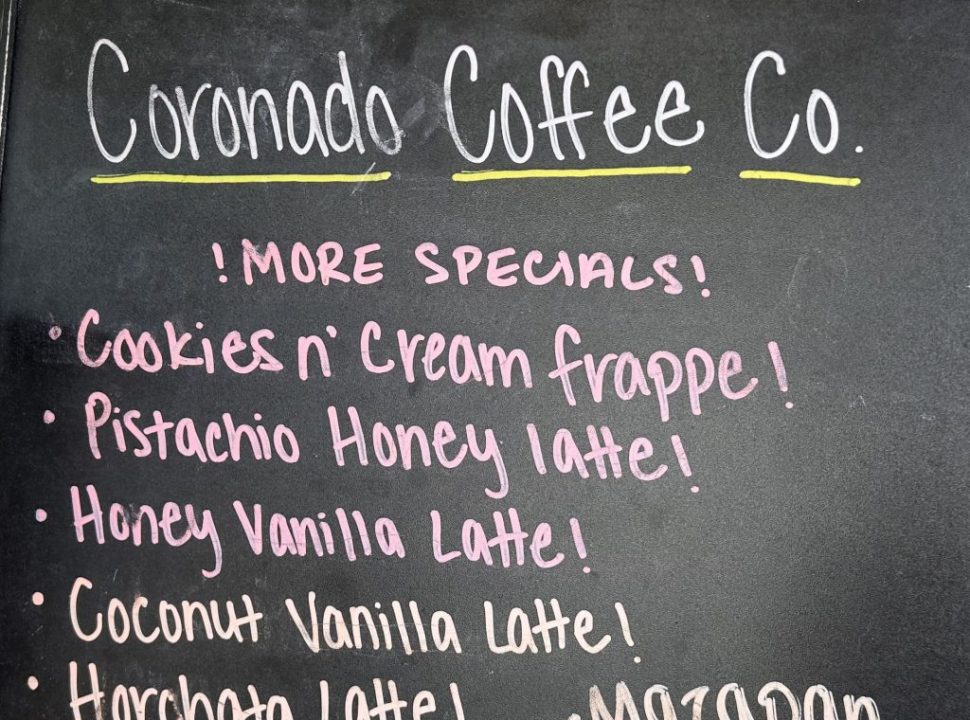 Coronado Coffee Co.
! MORE SPECIALS!
• Cookies n' Cream frappe!
• Pistachio Honey latte!
• Honey Vanilla Latte!
• Coconut Vanilla Latte!
• Horchata Latte! • Mazapan